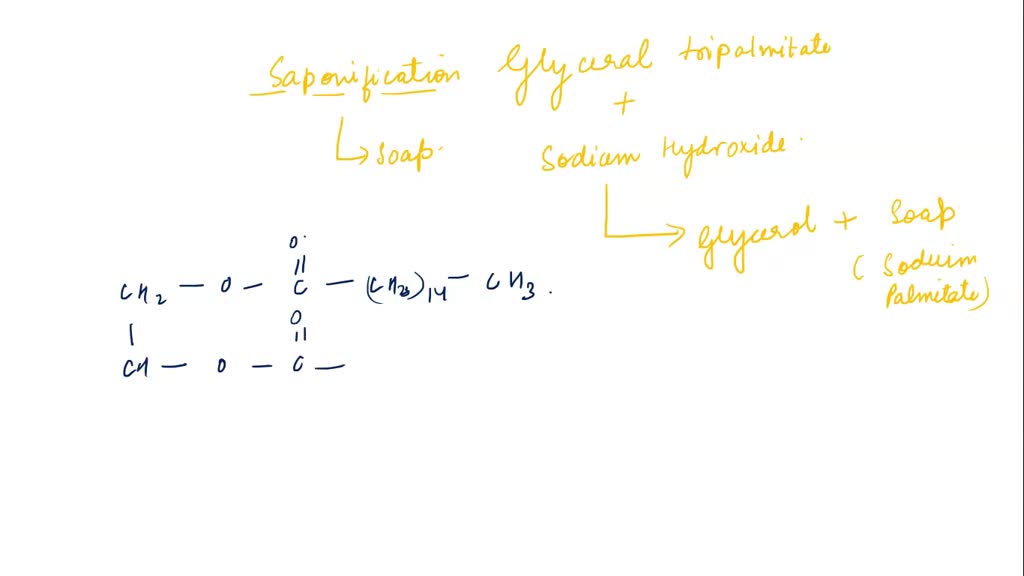 Saponification Glyceral tripalmitate
+
Soap.
Sodium Hydroxide.
Glycerol + Soap
(Sodium
Palmitate)
O
||
CH2 — O — C — (CH2)14 — CH3.
|
O
||
CH — O — C —